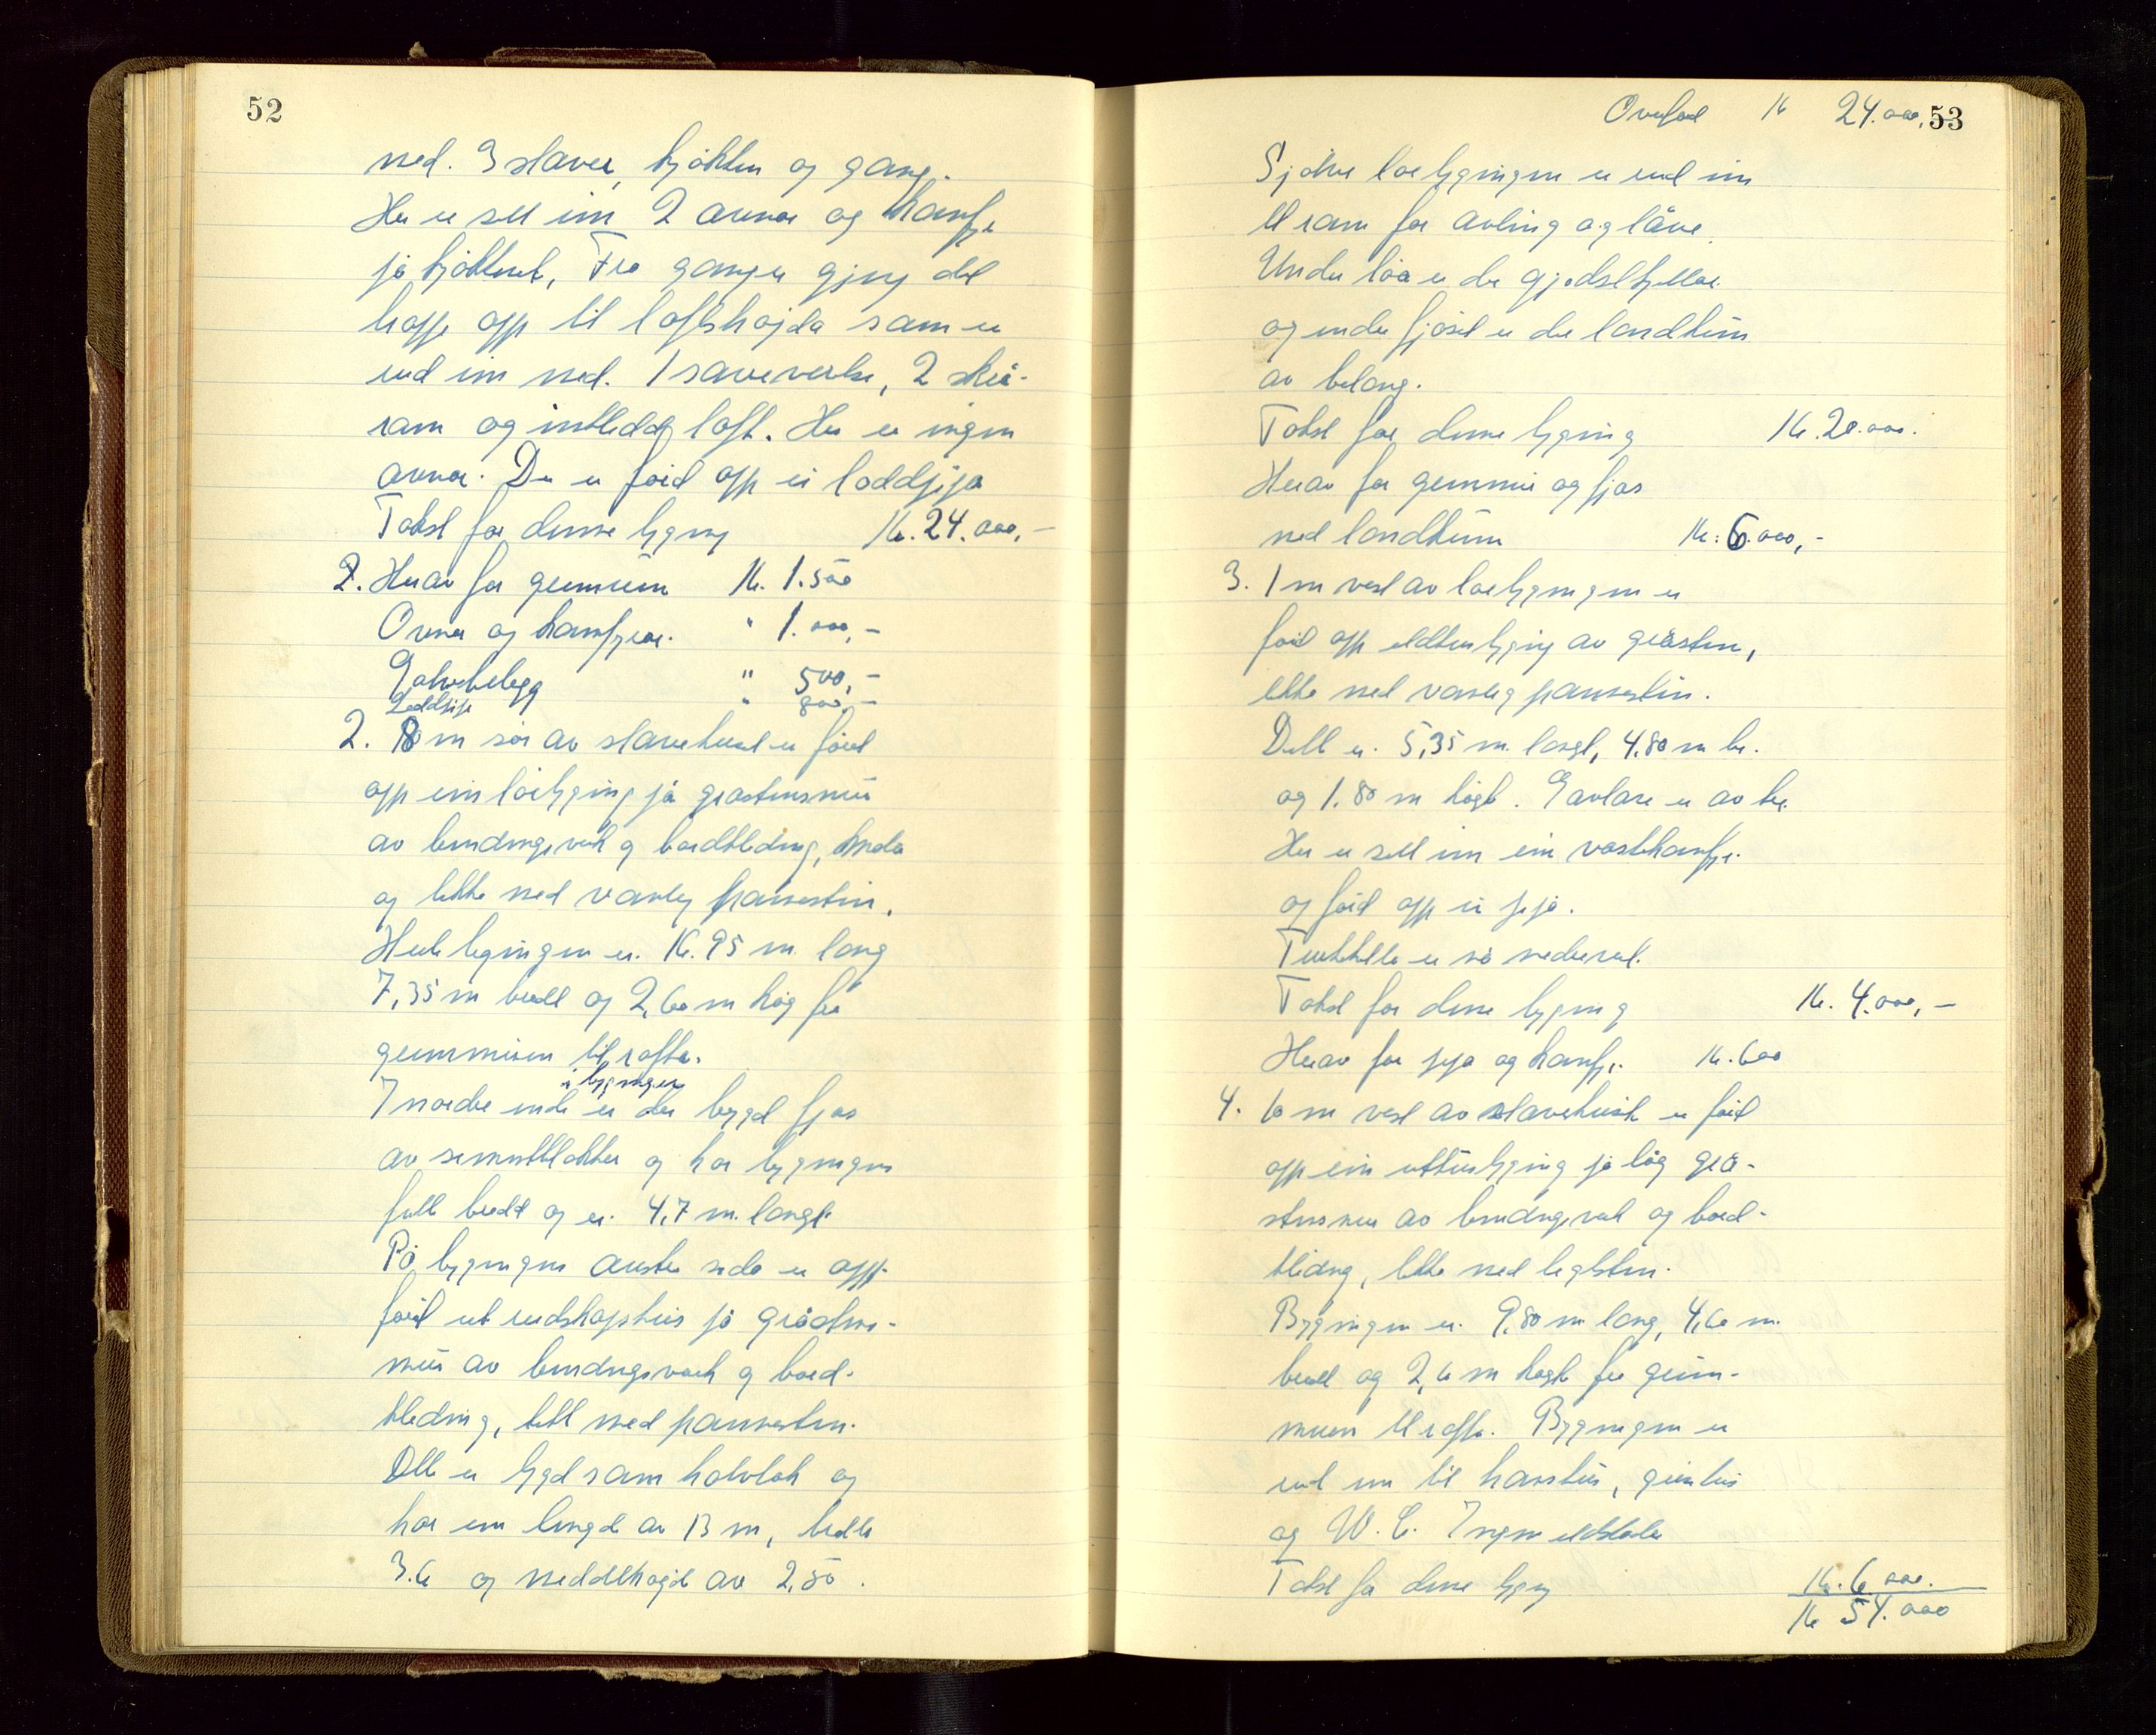 52
med. 3 stover, kjøkken og gang.
Her er sett inn 2 omnar og komfyr
på kjøkkenet, Fra gangen gjeng det
trapp opp til loftshøgda som er
med. 1 soveverelse, 2 skrå-
rom og innkledd loft. Her er ingen
omnar. Der er ført opp ei loddpipa
Takst for denne bygning Kr. 24.000,-
2. Herav for grunnmur Kr. 1.500
Omnar og komfyrar. " 1.000,-
Golvbelegg " 500,-
Loddpipe " 800,-
2. 18 m sør av stovehuset er ført
opp ein løebygning på gråsteinsmur
av bindingsverk og bordkledning,
og tekke med vanleg pannestein.
Heile bygningen er. 16.95 m. lang
7,35 m breidd og 2,60 m høg fra
grunnmuren til rafta.
i bygningen
I nordre ende er der bygd fjøs
av sementblokker og har bygningens
full breidd og er. 4,7 m. langt.
På bygningens austre side er opp-
ført eit reidskapshus på gråsteins-
mur av bindingsverk og bord-
kledning, tekt med pannestein.
Dette er bygd som halvtak og
har ein lengde av 13 m, bredde
3.6 og middelhøgde av 2,50.
Overført Kr 24.000, 53
Sjølve løebygningen er
til rom for avling og låve.
Under løa er der gjødselkjellar
og under fjøset er der landkum
av betong.
Takst for denne bygning Kr. 20.000.
Herav for grunnmur og fjøs
med landkum Kr. 6.000,-
3. 1 m vest av løebygningen er
ført opp eldhusbygning av gråstein,
tekke med vanleg pannestein.
Dette er. 5,35 m. langt, 4.80 m br.
og 1.80 m høgt. Gavlane er av tre.
Her er sett inn ein vaskekomfyr.
og ført opp ei pipa.
Takst for denne bygning Kr. 4.000,-
Herav for pipa og komfyr. Kr. 600
4. 10 m vest av stovehuset er ført
opp ein uthusbygning på låg grå-
steinsmur av bindingsverk og bord-
kledning, tekke med teglstein.
Bygningen er. 9,80 m lang, 4,60 m.
breidd og 2,6 m høgt fra grunn-
muren til rafta. Bygningen er
inn til hønsehus, grisehus
og W. C. Ingen eldstader
Takst for denne bygning Kr. 6.000.
Kr 54.000